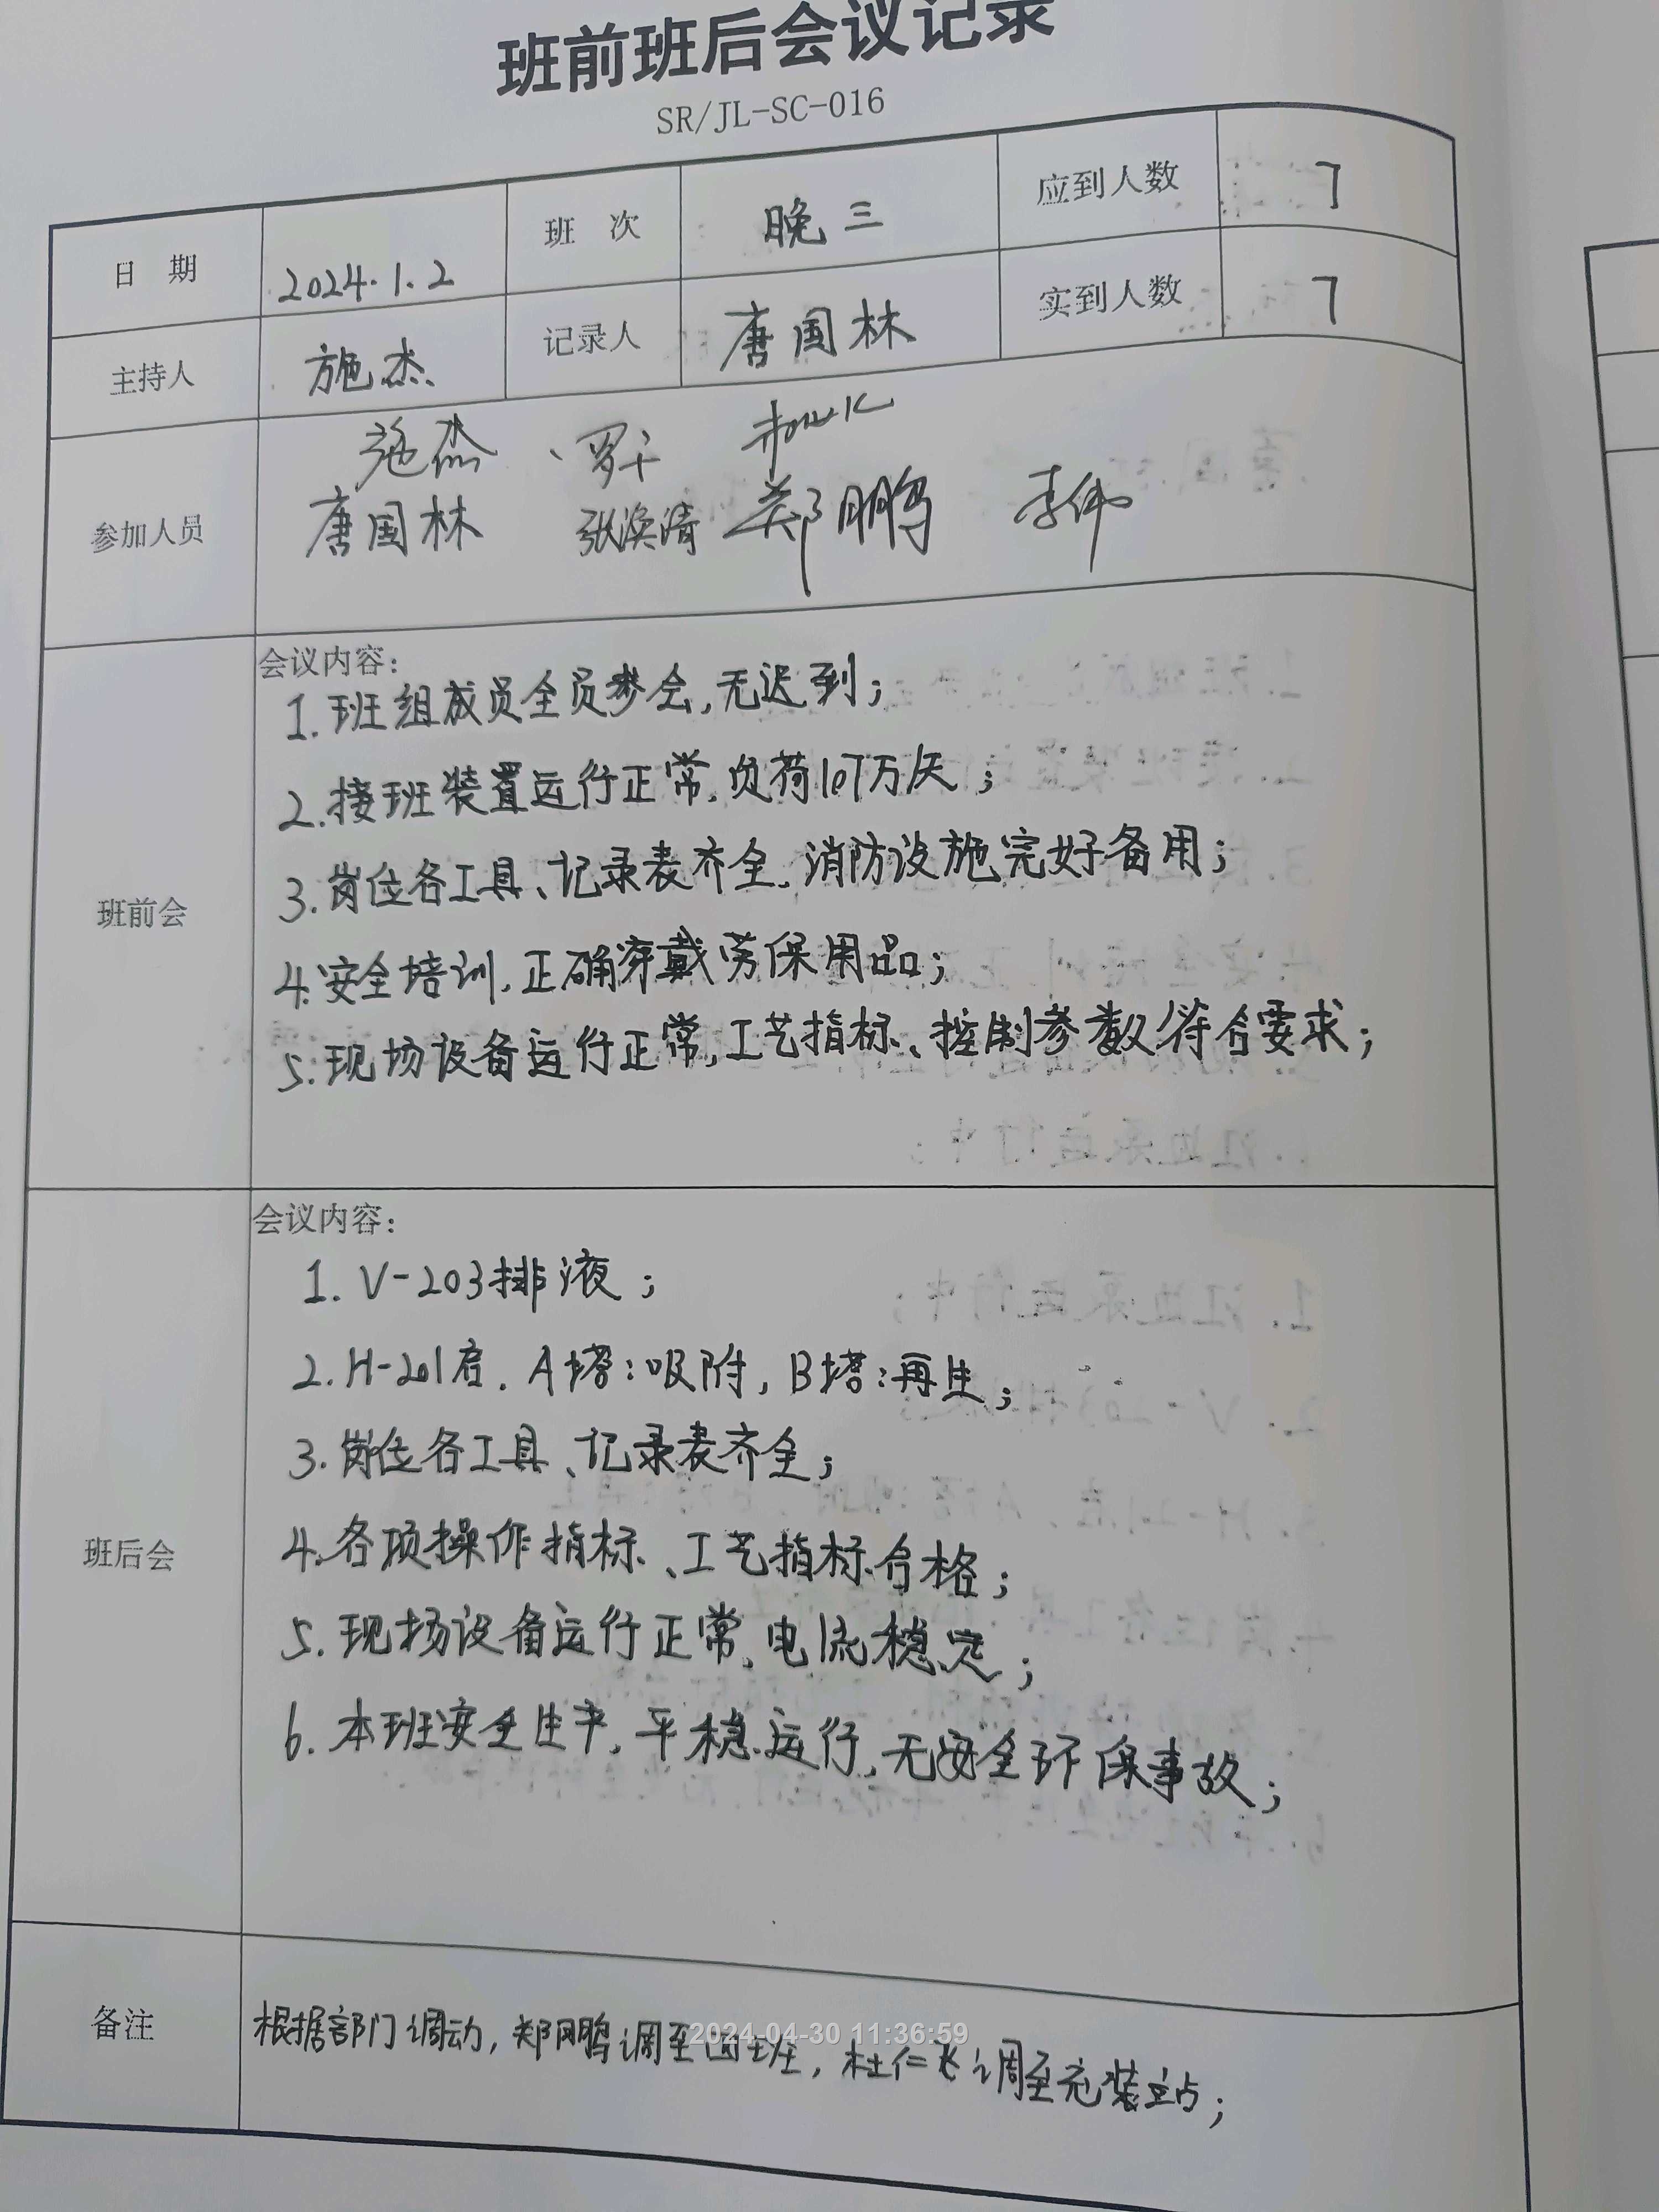 班前班后会议记录
SR/JL-SC-016
日 期 2024.1.2 班 次 晚三 应到人数 7
主持人 施杰 记录人 唐国林 实到人数 7
参加人员
施杰、罗干
唐国林 张涣清 郑鹏 李伟
班前会
会议内容:
1. 班组成员全员参会,无迟到;
2. 接班装置运行正常,负荷107万/天;
3. 岗位各工具、记录表齐全,消防设施完好备用;
4. 安全培训,正确穿戴劳保用品;
5. 现场设备运行正常,工艺指标、控制参数符合要求;
班后会
会议内容:
1. V-203排液;
2. H-201启. A塔:吸附, B塔:再生;
3. 岗位各工具、记录表齐全;
4. 各项操作指标、工艺指标合格;
5. 现场设备运行正常,电流稳定;
6. 本班安全生产,平稳运行,无安全环保事故;
备注
根据部门调动,郑鹏调至四班,杜仁飞调至充装站;
2024-04-30 11:36:59